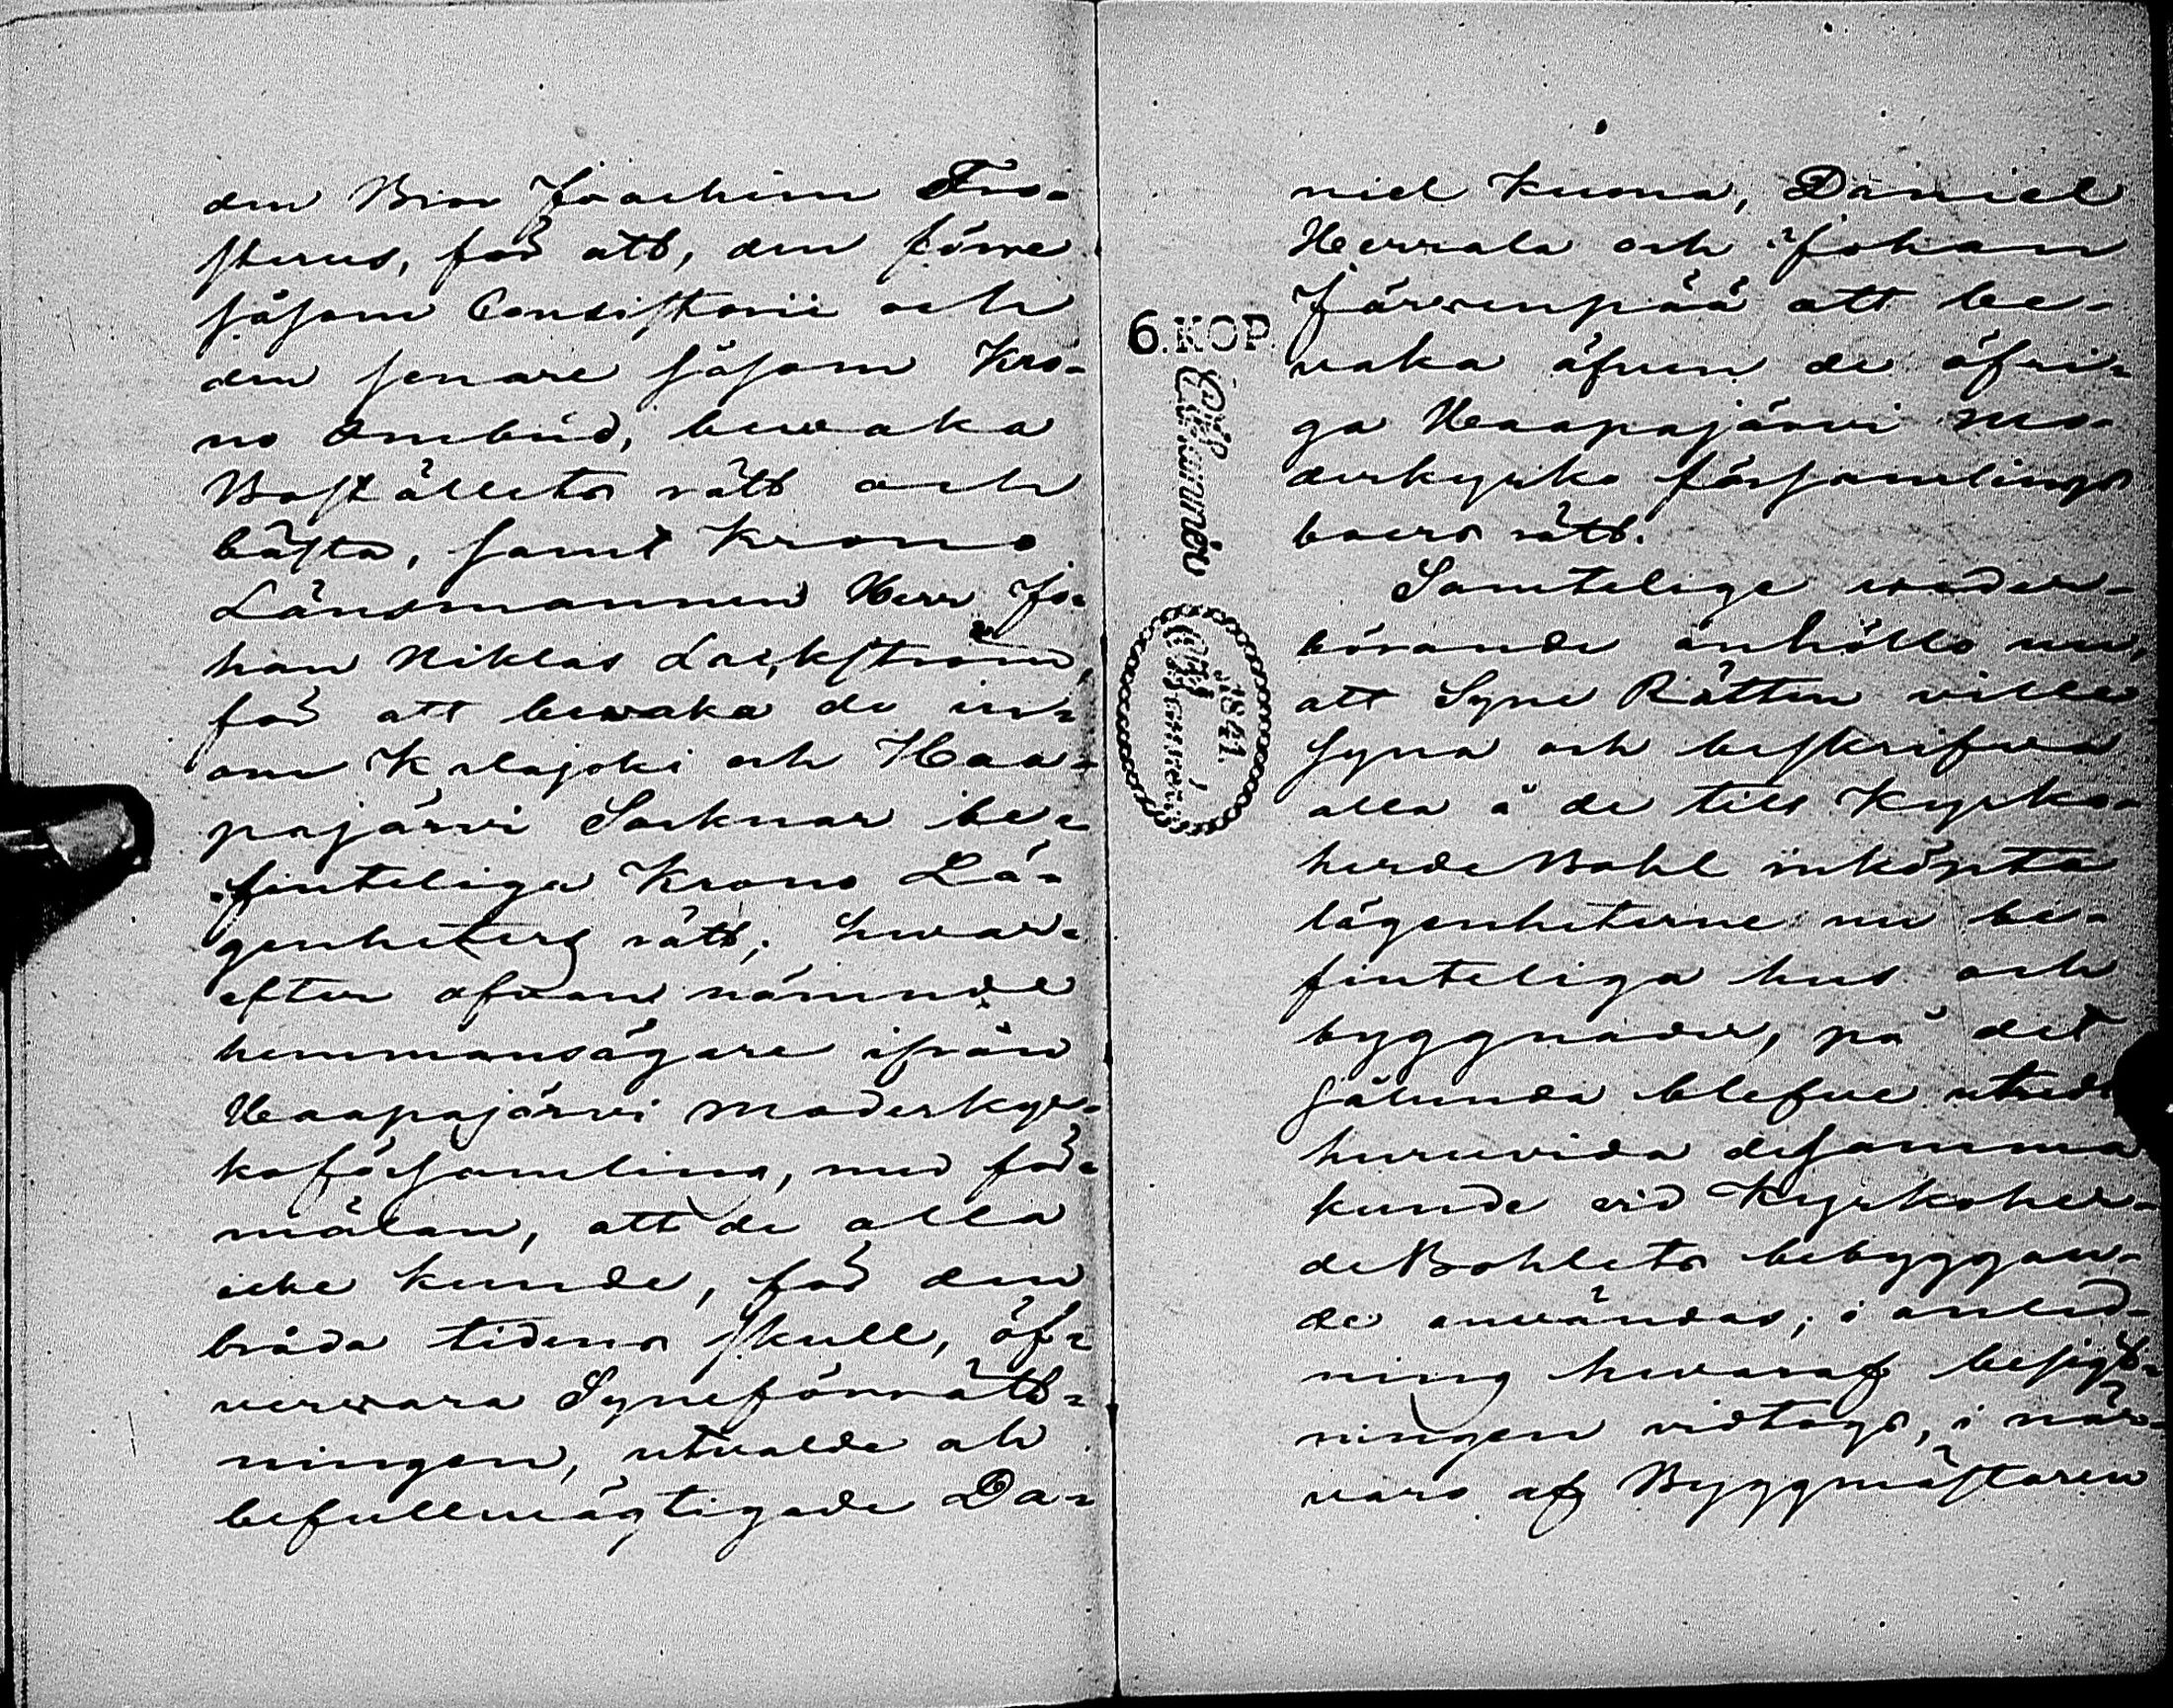 den Bror Joachim Fro-
sterus, för att, den förre
såsom Consistorii och
den senare såsom Kro-
no Ombud, bewaka
Boställets rätt och
bästa, samt Krono
Länsmannen Herr Jo-
han Niklas Lackström,
för att bewaka de in-
om Kalajoki och Haa-
pajärvi Socknar be-
finteliga Krono Lä-
genheters rätt; hwar-
efter ofvan nämnde
hemmansägare ifrån
Haapajärvi moderkyr-
koförsamling, med för-
mälan, att de alla
icke kunde, för den
bråda tidens skull, öf-
verwara Syneförrätt-
ningen, utvalde och
befullmägtigade Da-
niel Kuona, Daniel
Herrala och Johan
Järvenpää att be-
vaka äfven de öfri-
ga Haapajärvi mo-
derkyrko församlings
boers rätt.
Samtelige weder-
börande anhöllo nu,
att Syne Rätten ville
syna och beskrifva
alla å de till Kyrko-
herde Bohl inköpta
lägenheterne nu be-
finteliga hus och
byggnader, på det
sålunda blefve utredt
huruvida desamma
kunde vid Kyrkoher-
de Bohlets bebyggan-
de användas; i anled-
ning hwaraf besigt-
ningen vidtogs, i när-
varo af Byggmästaren
6. KOP.
1841.